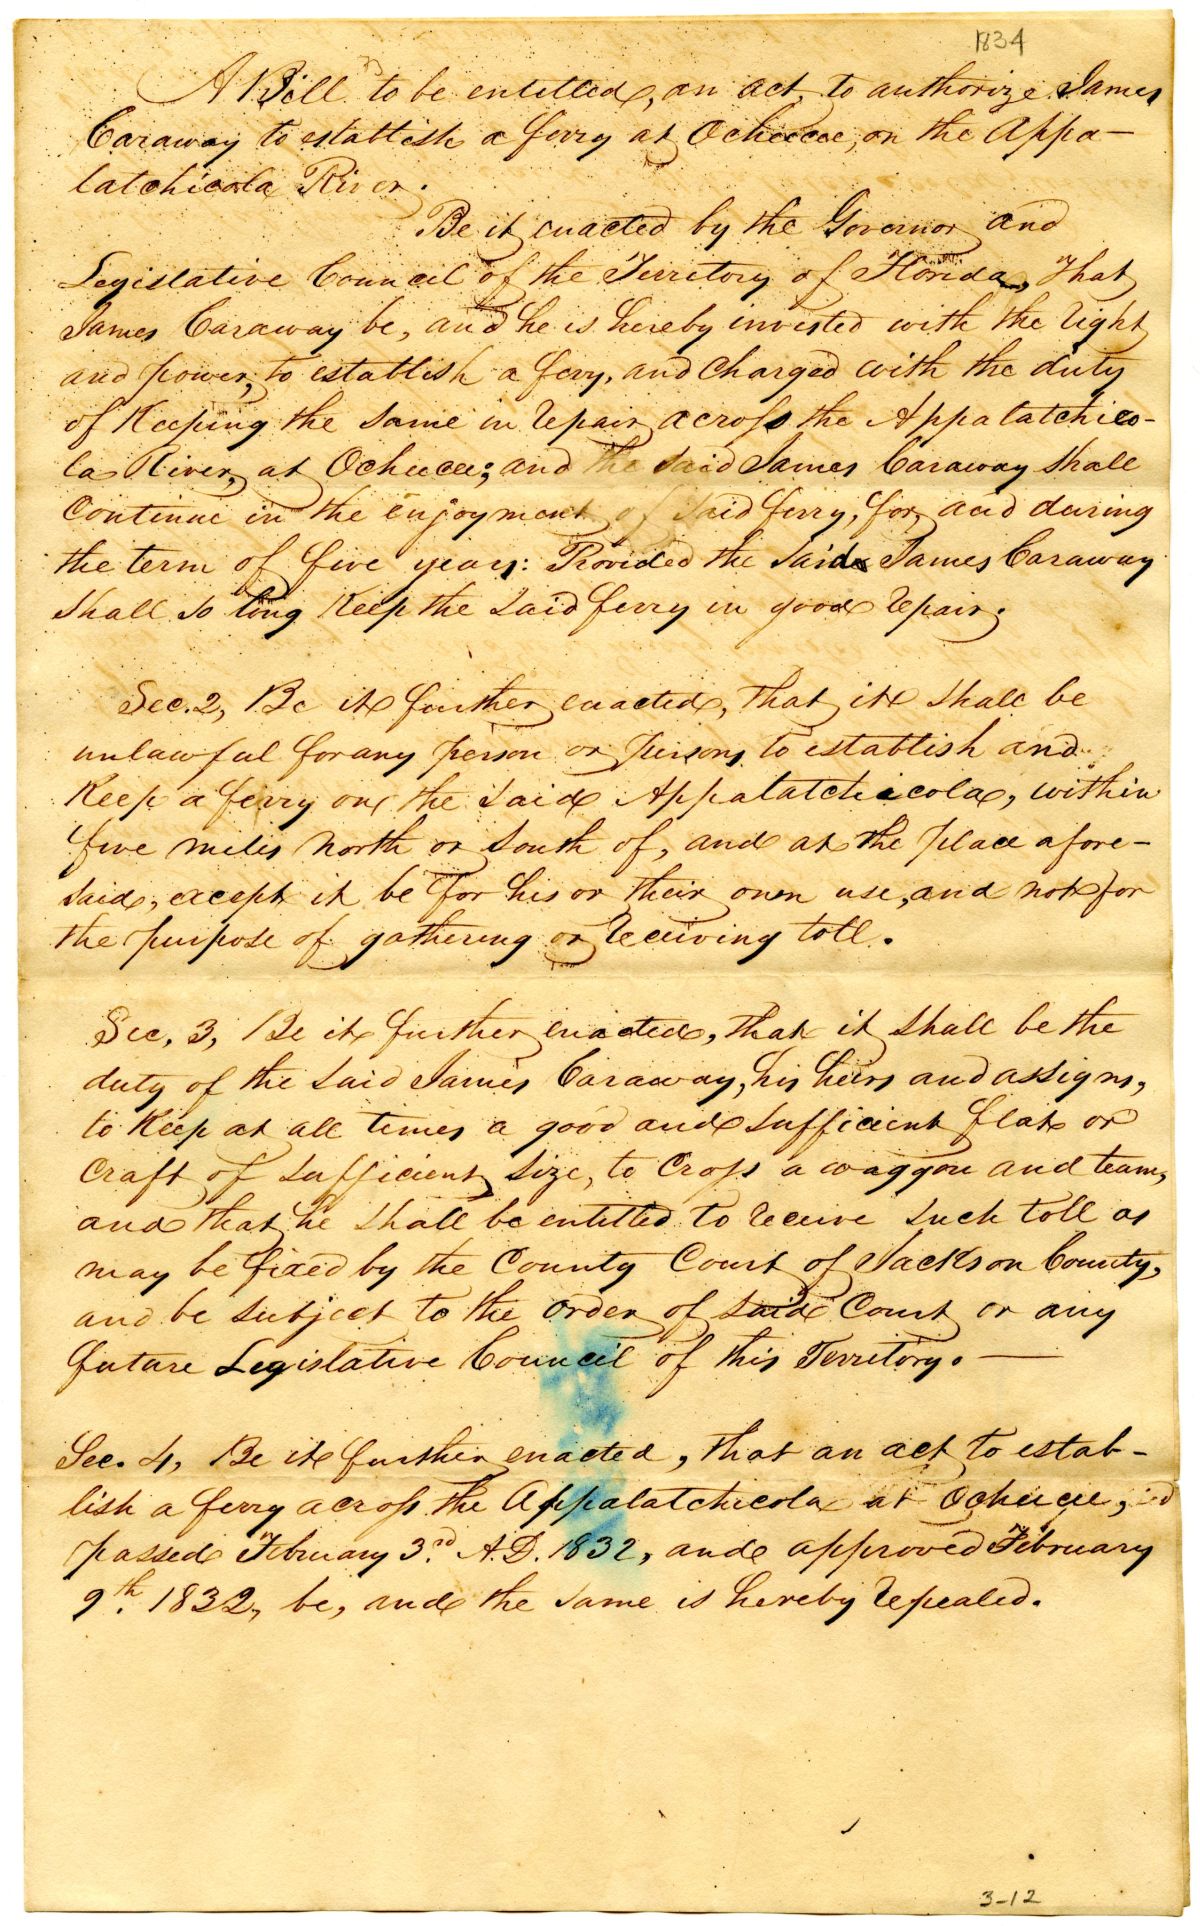 1834
A Bill to be entitled, an act, to authorize James
Caraway to establish a ferry at Ocheecee, on the Appa-
latchicola River.
Be it enacted by the Governor and
Legislative Council of the Territory of Florida, That
James Caraway be, and he is hereby invested with the right
and power, to establish a ferry, and charged with the duty
of Keeping the same in repair across the Appalatchico-
la River, at Ocheecee; and the said James Caraway shall
Continue in the enjoyment of said ferry, for, and during
the term of five years: Provided the said James Caraway
shall so long Keep the said ferry in good repair.
Sec. 2, Be it further enacted, that it shall be
unlawful for any person or persons to establish and
Keep a ferry on the said Appalatchicola, within
five miles north or south of, and at the place afore-
said, except it be for his or their own use, and not for
the purpose of gathering or receiving toll.
Sec. 3, Be it further enacted, that it shall be the
duty of the said James Caraway, his heirs and assigns,
to Keep at all times a good and sufficient flat or
Craft of sufficient size, to Cross a waggon and team,
and that he shall be entitled to receive such toll as
may be fixed by the County Court of Jackson County,
and be subject to the order of said Court or any
future Legislative Council of this Territory. —
Sec. 4, Be it further enacted, that an act, to estab-
lish a ferry across the Appalatchicola at Ocheecee,
passed February 3rd. A.D. 1832, and approved February
9th. 1832, be, and the same is hereby repealed.
3-12